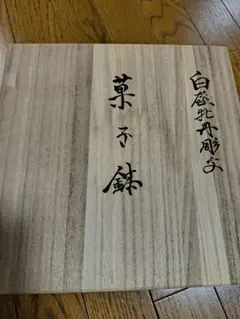 白磁牡丹彫文
菓子鉢